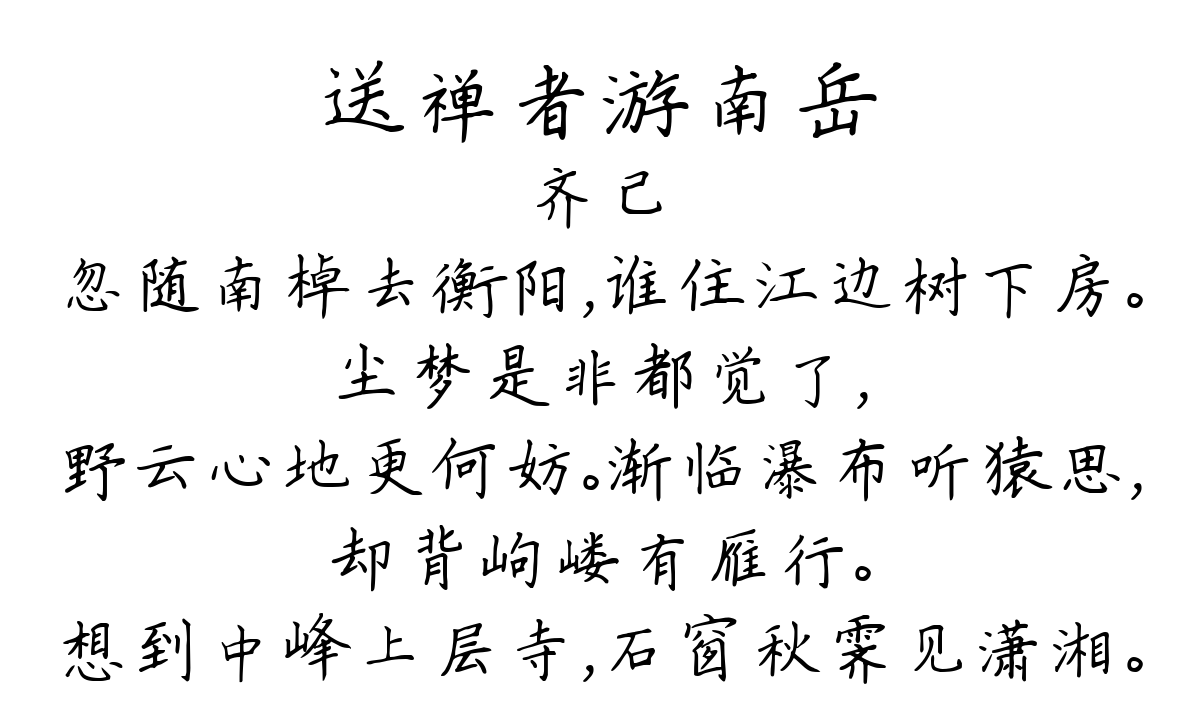 送禅者游南岳
齐己
忽随南棹去衡阳,谁住江边树下房。
尘梦是非都觉了,
野云心地更何妨。渐临瀑布听猿思,
却背岣嵝有雁行。
想到中峰上层寺,石窗秋霁见潇湘。